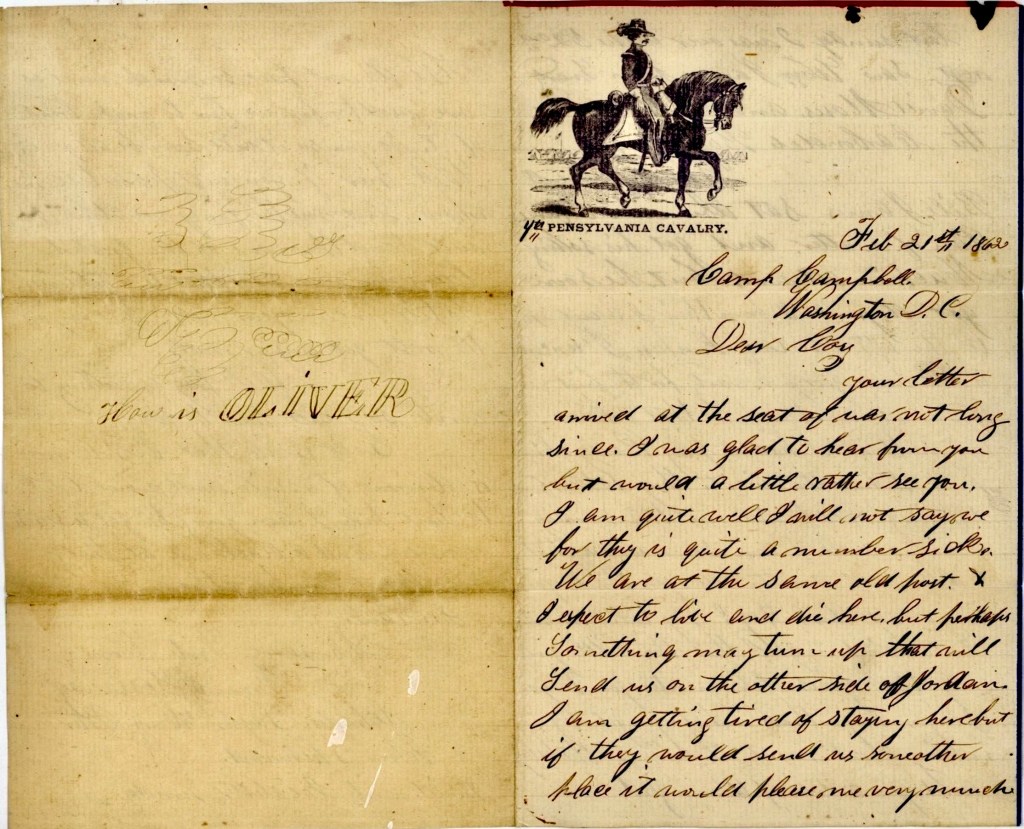 How is OLIVER
4th PENSYLVANIA CAVALRY.
Feb 21st 1862
Camp Campbell.
Washington D. C.
Dear Coy
your letter
arrived at the seat of war not long
since. I was glad to hear from you
but would a little rather see you.
I am quite well I will not say we
for they is quite a number sick.
We are at the same old post. &
I expect to live and die here, but perhaps
Something may turn up that will
Send us on the other side of Jordan.
I am getting tired of staying here but
if they would send us some other
place it would please me very much